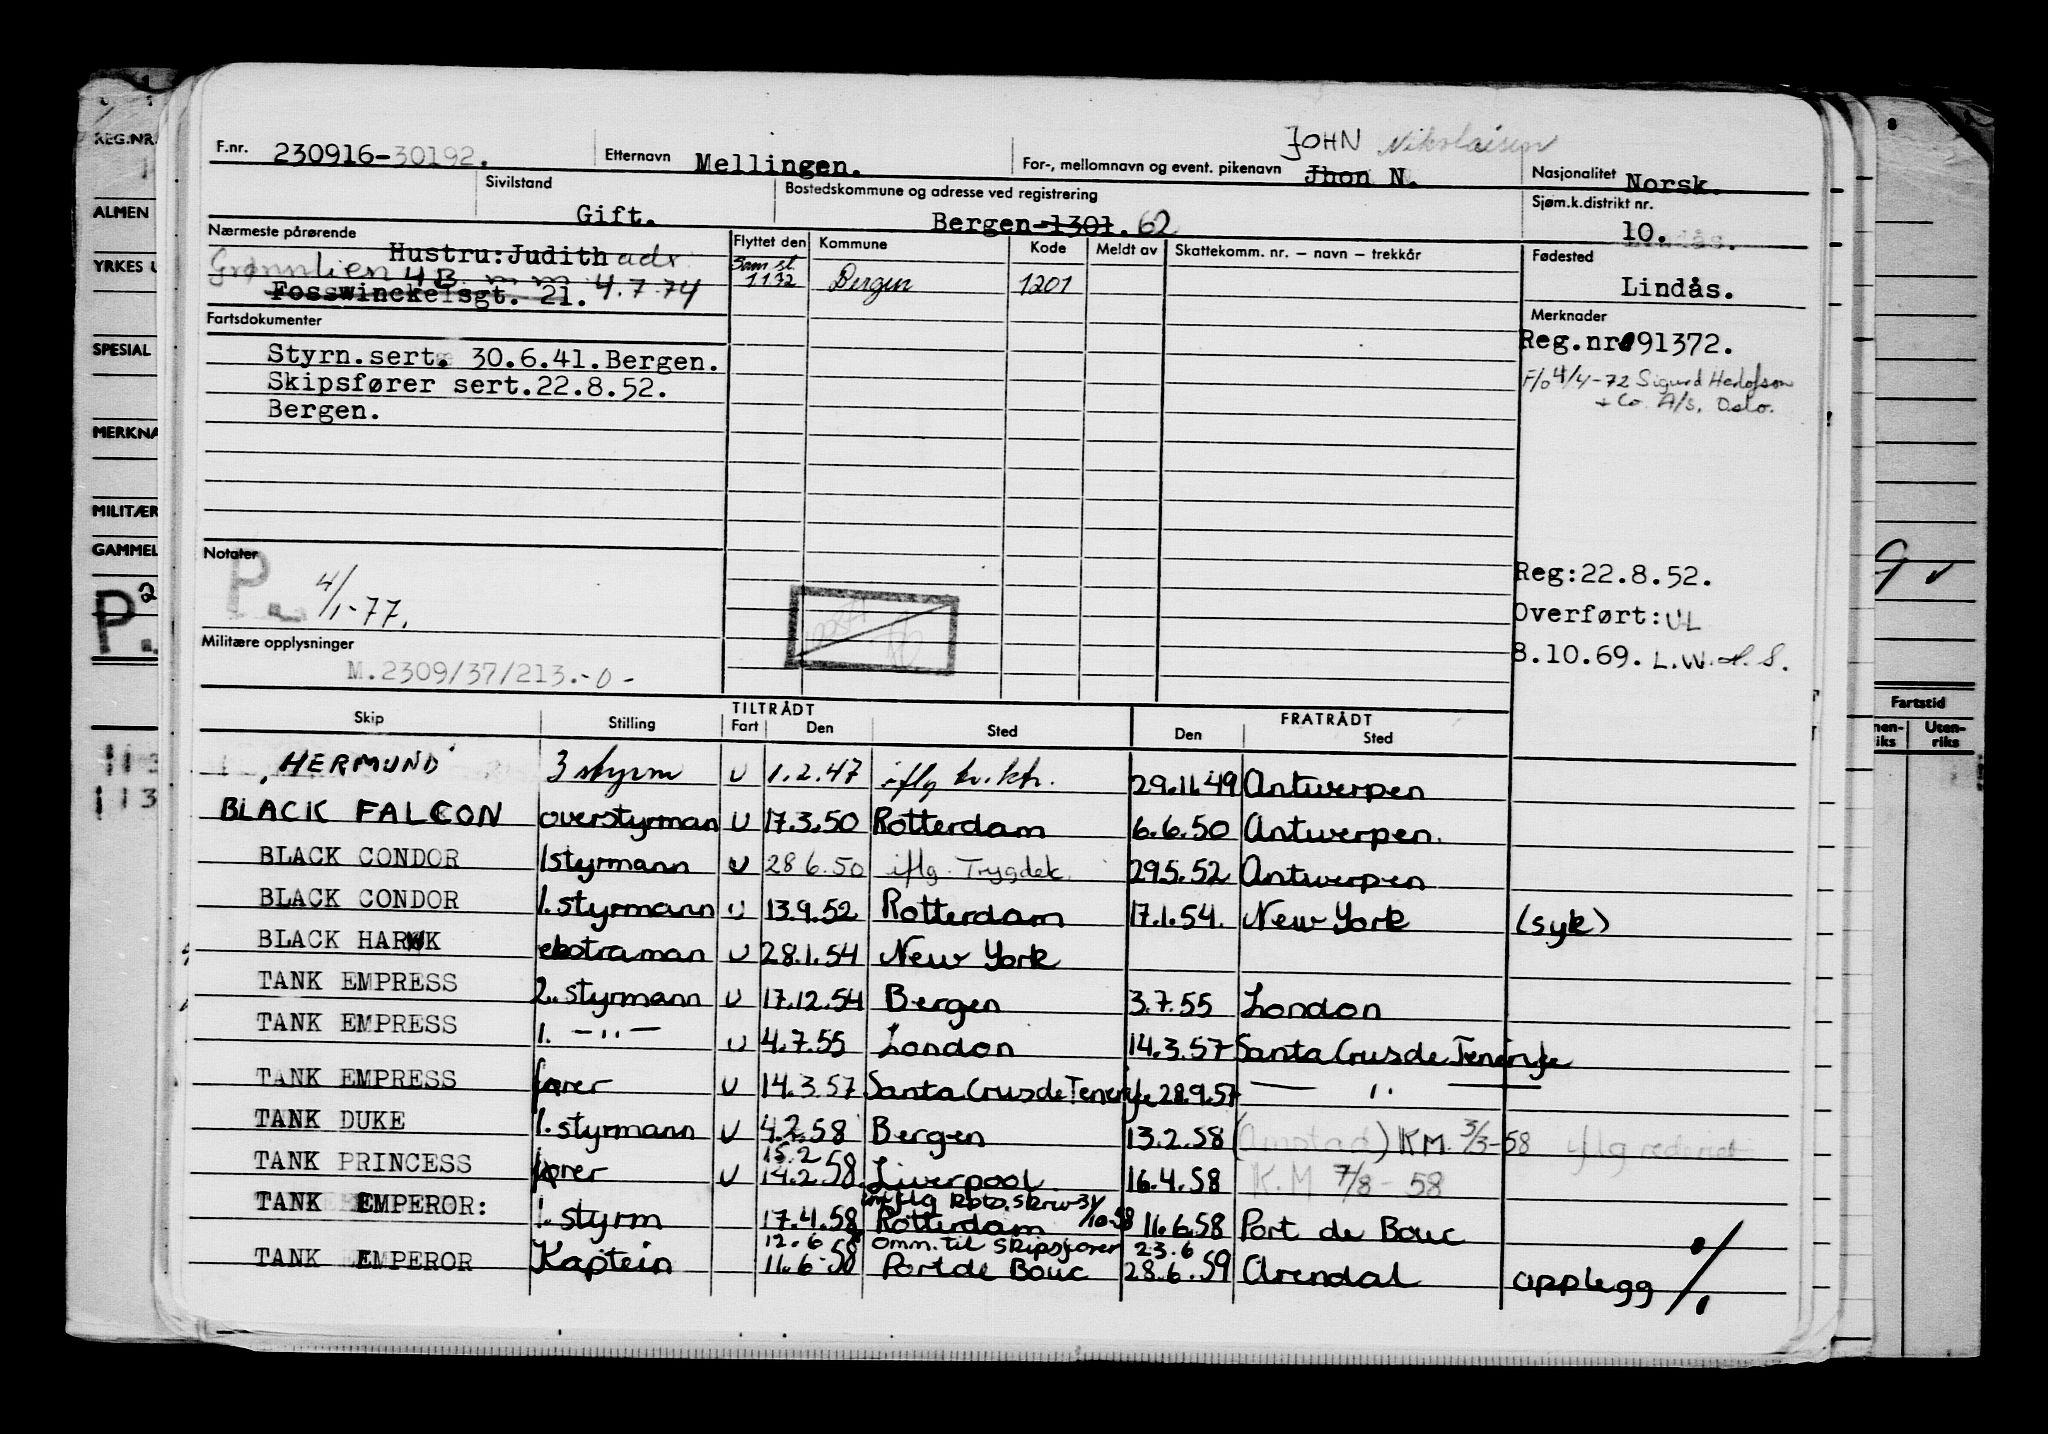 JOHN Nikolaisen
F.nr. 230916-30192. Etternavn Mellingen. For-, mellomnavn og event. pikenavn Jhon N. Nasjonalitet Norsk.
Sivilstand Gift. Bostedskommune og adresse ved registrering Bergen-1301. 62 Sjøm.k.distrikt nr. 10.
Nærmeste pårørende Hustru:Judith adr. Flyttet den Kommune Kode Meldt av Skattekomm. nr. – navn – trekkår Fødested
Grønnlien 4B 4.7.74 Sam st. 1172 Bergen 1201 Lindås.
Fosswinckelsgt. 21.
Fartsdokumenter Merknader
Styrm.sert. 30.6.41.Bergen. Reg.nr 91372.
Skipsfører sert.22.8.52. F/o 4/4-72 Sigurd Herlofson
Bergen. + Co. A/S, Oslo.
Notater
P. 4/1-77. Reg:22.8.52.
Overført:UL
8.10.69. L.W. H.S.
Militære opplysninger
M.2309/37/213.-0-
TILTRÅDT FRATRÅDT
Skip Stilling Fart Den Sted Den Sted
HERMUND 3 styrm U 1.2.47 iflg kr.ktr. 29.11.49 Antwerpen
BLACK FALCON overstyrman U 17.3.50 Rotterdam 6.6.50 Antwerpen.
BLACK CONDOR 1styrmann U 28 6.50 iflg. Trygdek. 29.5.52 Antwerpen
BLACK CONDOR 1.styrmann U 13.9.52 Rotterdam 17.1.54. New York (syk)
BLACK HAWK ekstraman U 28.1.54 New York
TANK EMPRESS 2. styrmann U 17.12.54 Bergen 3.7.55 London
TANK EMPRESS 1. —"— U 4.7.55 London 14.3.57 Santa Crus de Tenerife
TANK EMPRESS fører U 14.3.57 Santa Crus de Tenerife 28.9.57 — " —
TANK DUKE 1. styrmann U 4.2.58 Bergen 13.2.58 (Onstad) KM. 3/3-58 iflg rederiet
TANK PRINCESS fører U 15.2 14.2.58. Liverpool 16.4.58 K.M 7/8-58
TANK EMPEROR: 1. styrm 17.4.58 Rotterdam 11.6.58 Port de Bouc
TANK EMPEROR Kaptein 12.6 11.6.58 omm. til skipsfører Port de Bouc 23.6 28.6.59 Arendal opplegg
REG.NR.
ALMEN
YRKES
SPESIAL
MERKNA
MILITÆR
GAMMEL
P. 2
Fartstid
Uten-
riks